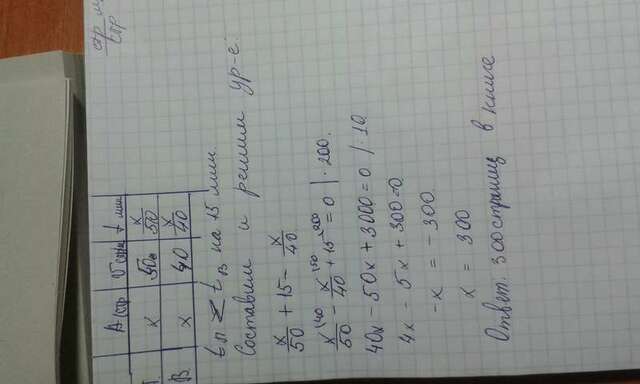 стр
A стр V стр/м t мин
П x 50 x/50
В x 40 x/40
tп < tв на 15 мин.
Составим и решим ур-е:
x/50 + 15 = x/40
x/50 - x/40 + 15 = 0 | · 200.
40x - 50x + 3000 = 0 | : 10
4x - 5x + 300 = 0
-x = -300
x = 300
Ответ. 300 страниц в книге